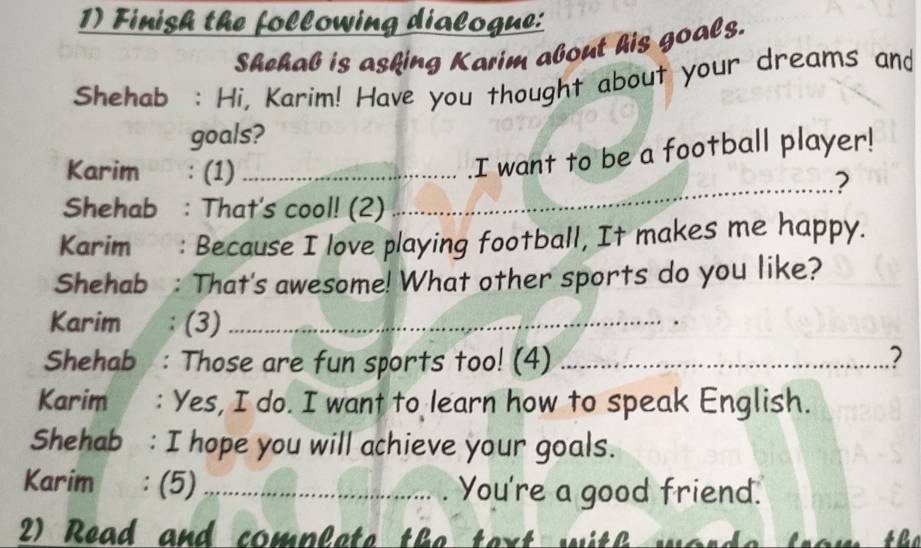 1) Finish the following dialogue:
Shehab is asking Karim about his goals.
Shehab : Hi, Karim! Have you thought about your dreams and
goals?
Karim : (1) ........................ I want to be a football player!
Shehab : That's cool! (2) ........................?
Karim : Because I love playing football, It makes me happy.
Shehab : That's awesome! What other sports do you like?
Karim : (3) ........................
Shehab : Those are fun sports too! (4) ........................?
Karim : Yes, I do. I want to learn how to speak English.
Shehab : I hope you will achieve your goals.
Karim : (5) ......................... You're a good friend.
2) Read and complete the text with words from